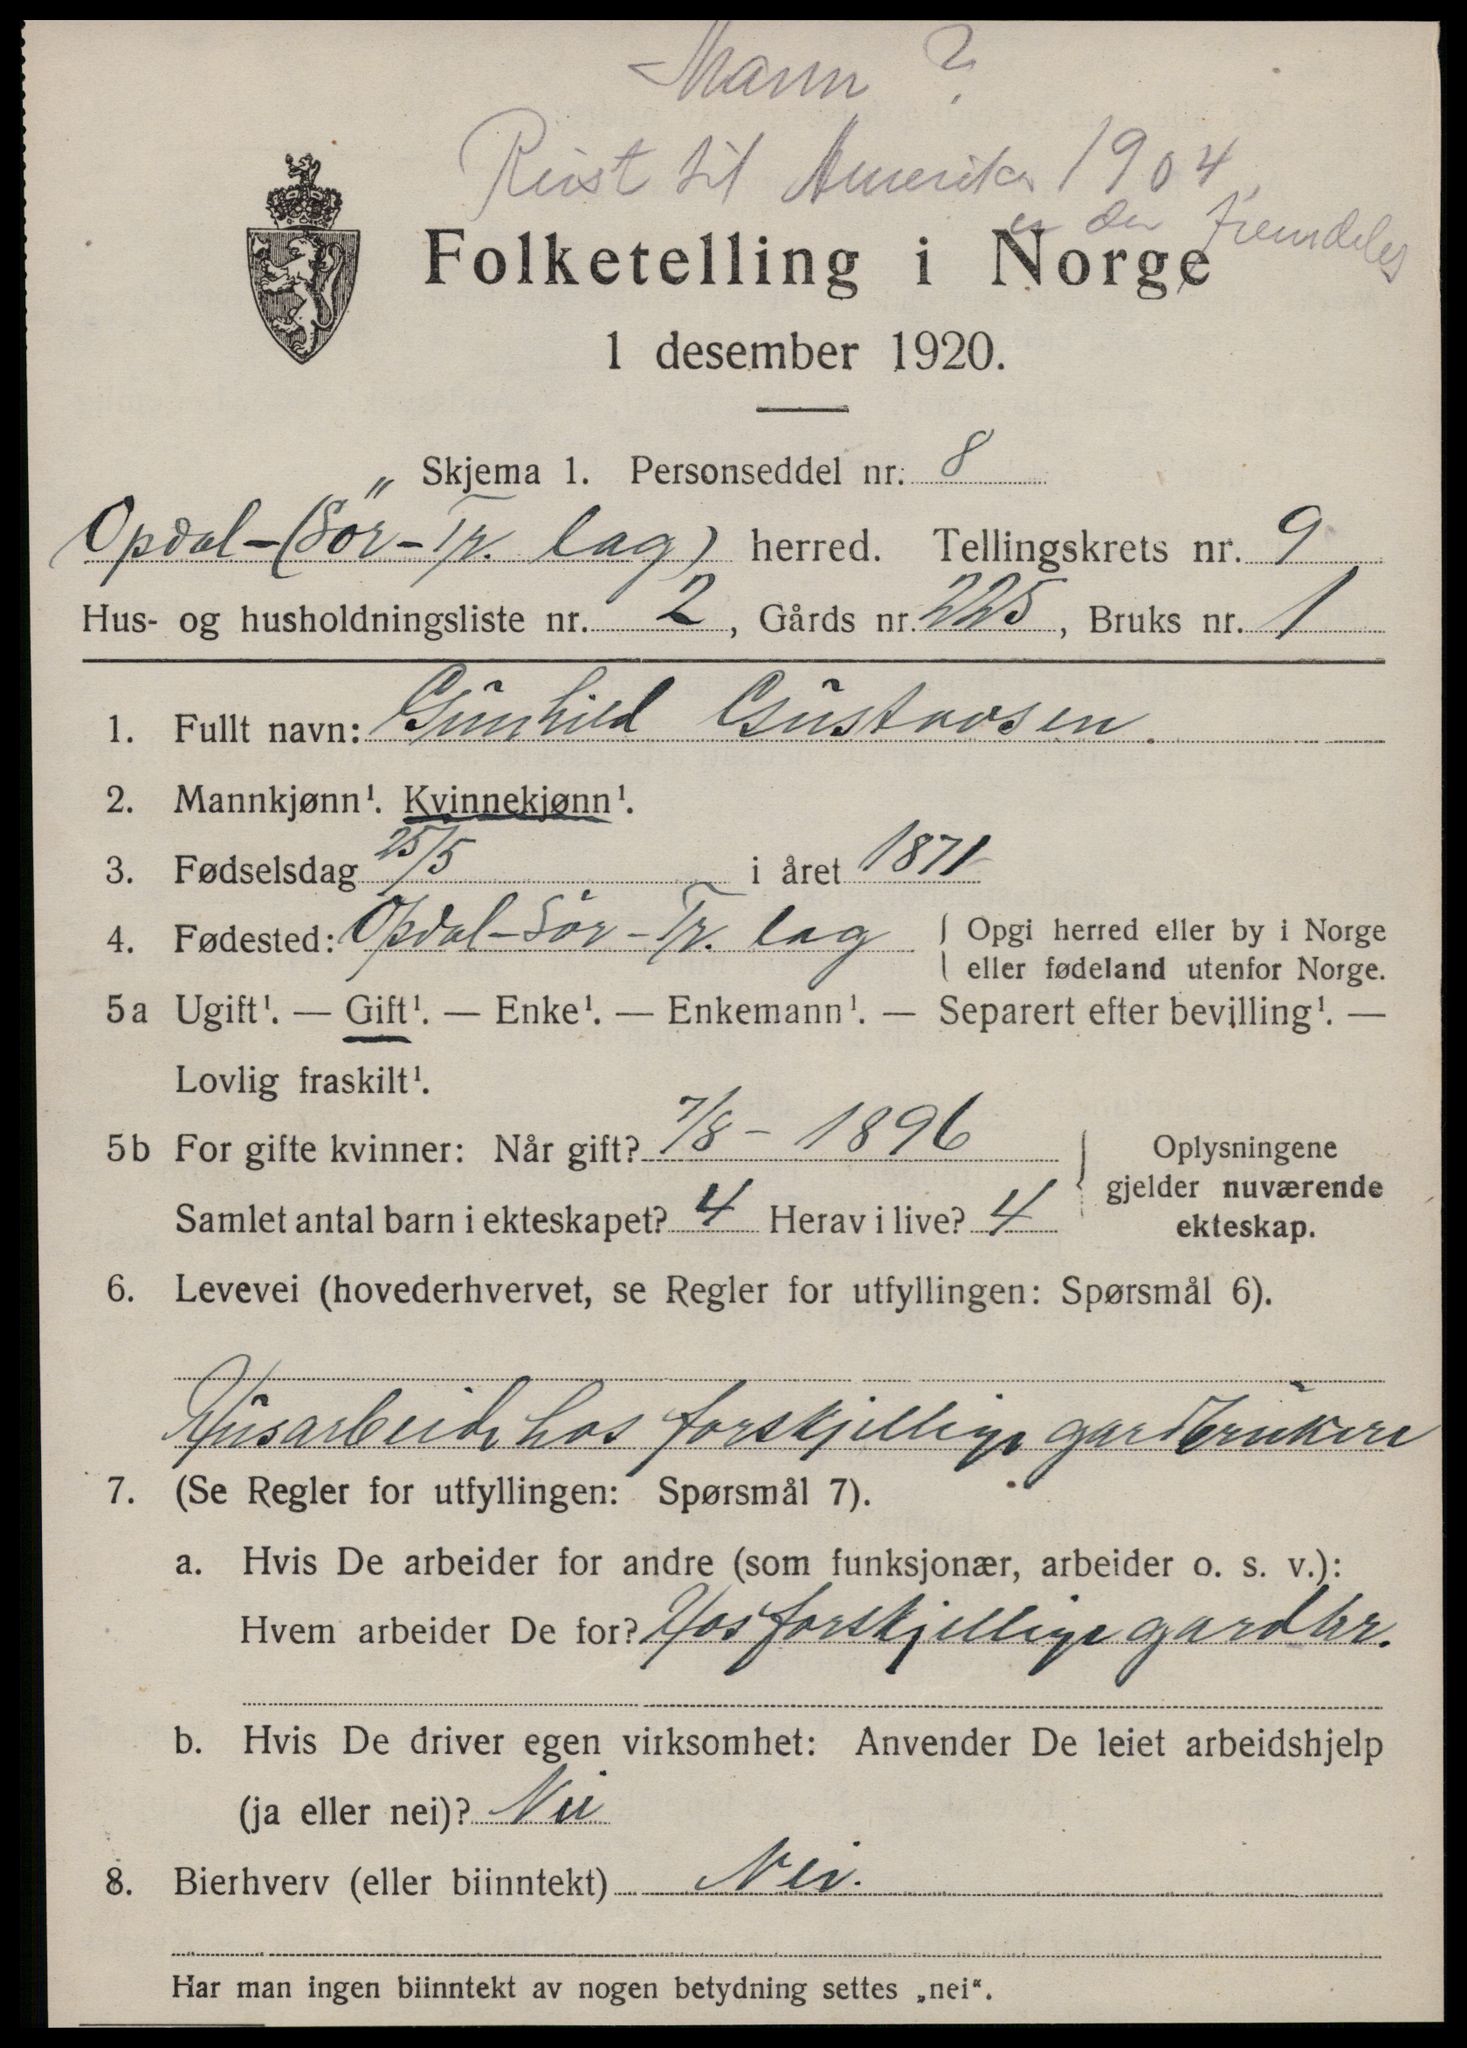 Mann ?
Reist til Amerika 1904
er der fremdeles
Folketelling i Norge
1 desember 1920.
Skjema 1. Personseddel nr. 8
Opdal-(Sör-Tr. lag) herred. Tellingskrets nr. 9
Hus- og husholdningsliste nr. 2, Gårds nr. 225, Bruks nr. 1
1. Fullt navn: Gunhild Gustavsen.
2. Mannkjønn¹. Kvinnekjønn¹.
3. Fødselsdag 25/5 i året 1871
4. Fødested: Opdal-Sör-Tr. lag { Opgi herred eller by i Norge
eller fødeland utenfor Norge.
5a Ugift¹. — Gift¹. — Enke¹. — Enkemann¹. — Separert efter bevilling¹. —
Lovlig fraskilt¹.
5b For gifte kvinner: Når gift? 7/8 - 1896
Samlet antal barn i ekteskapet? 4 Herav i live? 4
Oplysningene
gjelder nuværende
ekteskap.
6. Levevei (hovederhvervet, se Regler for utfyllingen: Spørsmål 6).
Husarbeide hos forskjellige gardbrukere
7. (Se Regler for utfyllingen: Spørsmål 7).
a. Hvis De arbeider for andre (som funksjonær, arbeider o. s. v.):
Hvem arbeider De for? Hos forskjellige gardbr.
b. Hvis De driver egen virksomhet: Anvender De leiet arbeidshjelp
(ja eller nei)? Nei
8. Bierhverv (eller biinntekt) Nei.
Har man ingen biinntekt av nogen betydning settes „nei“.